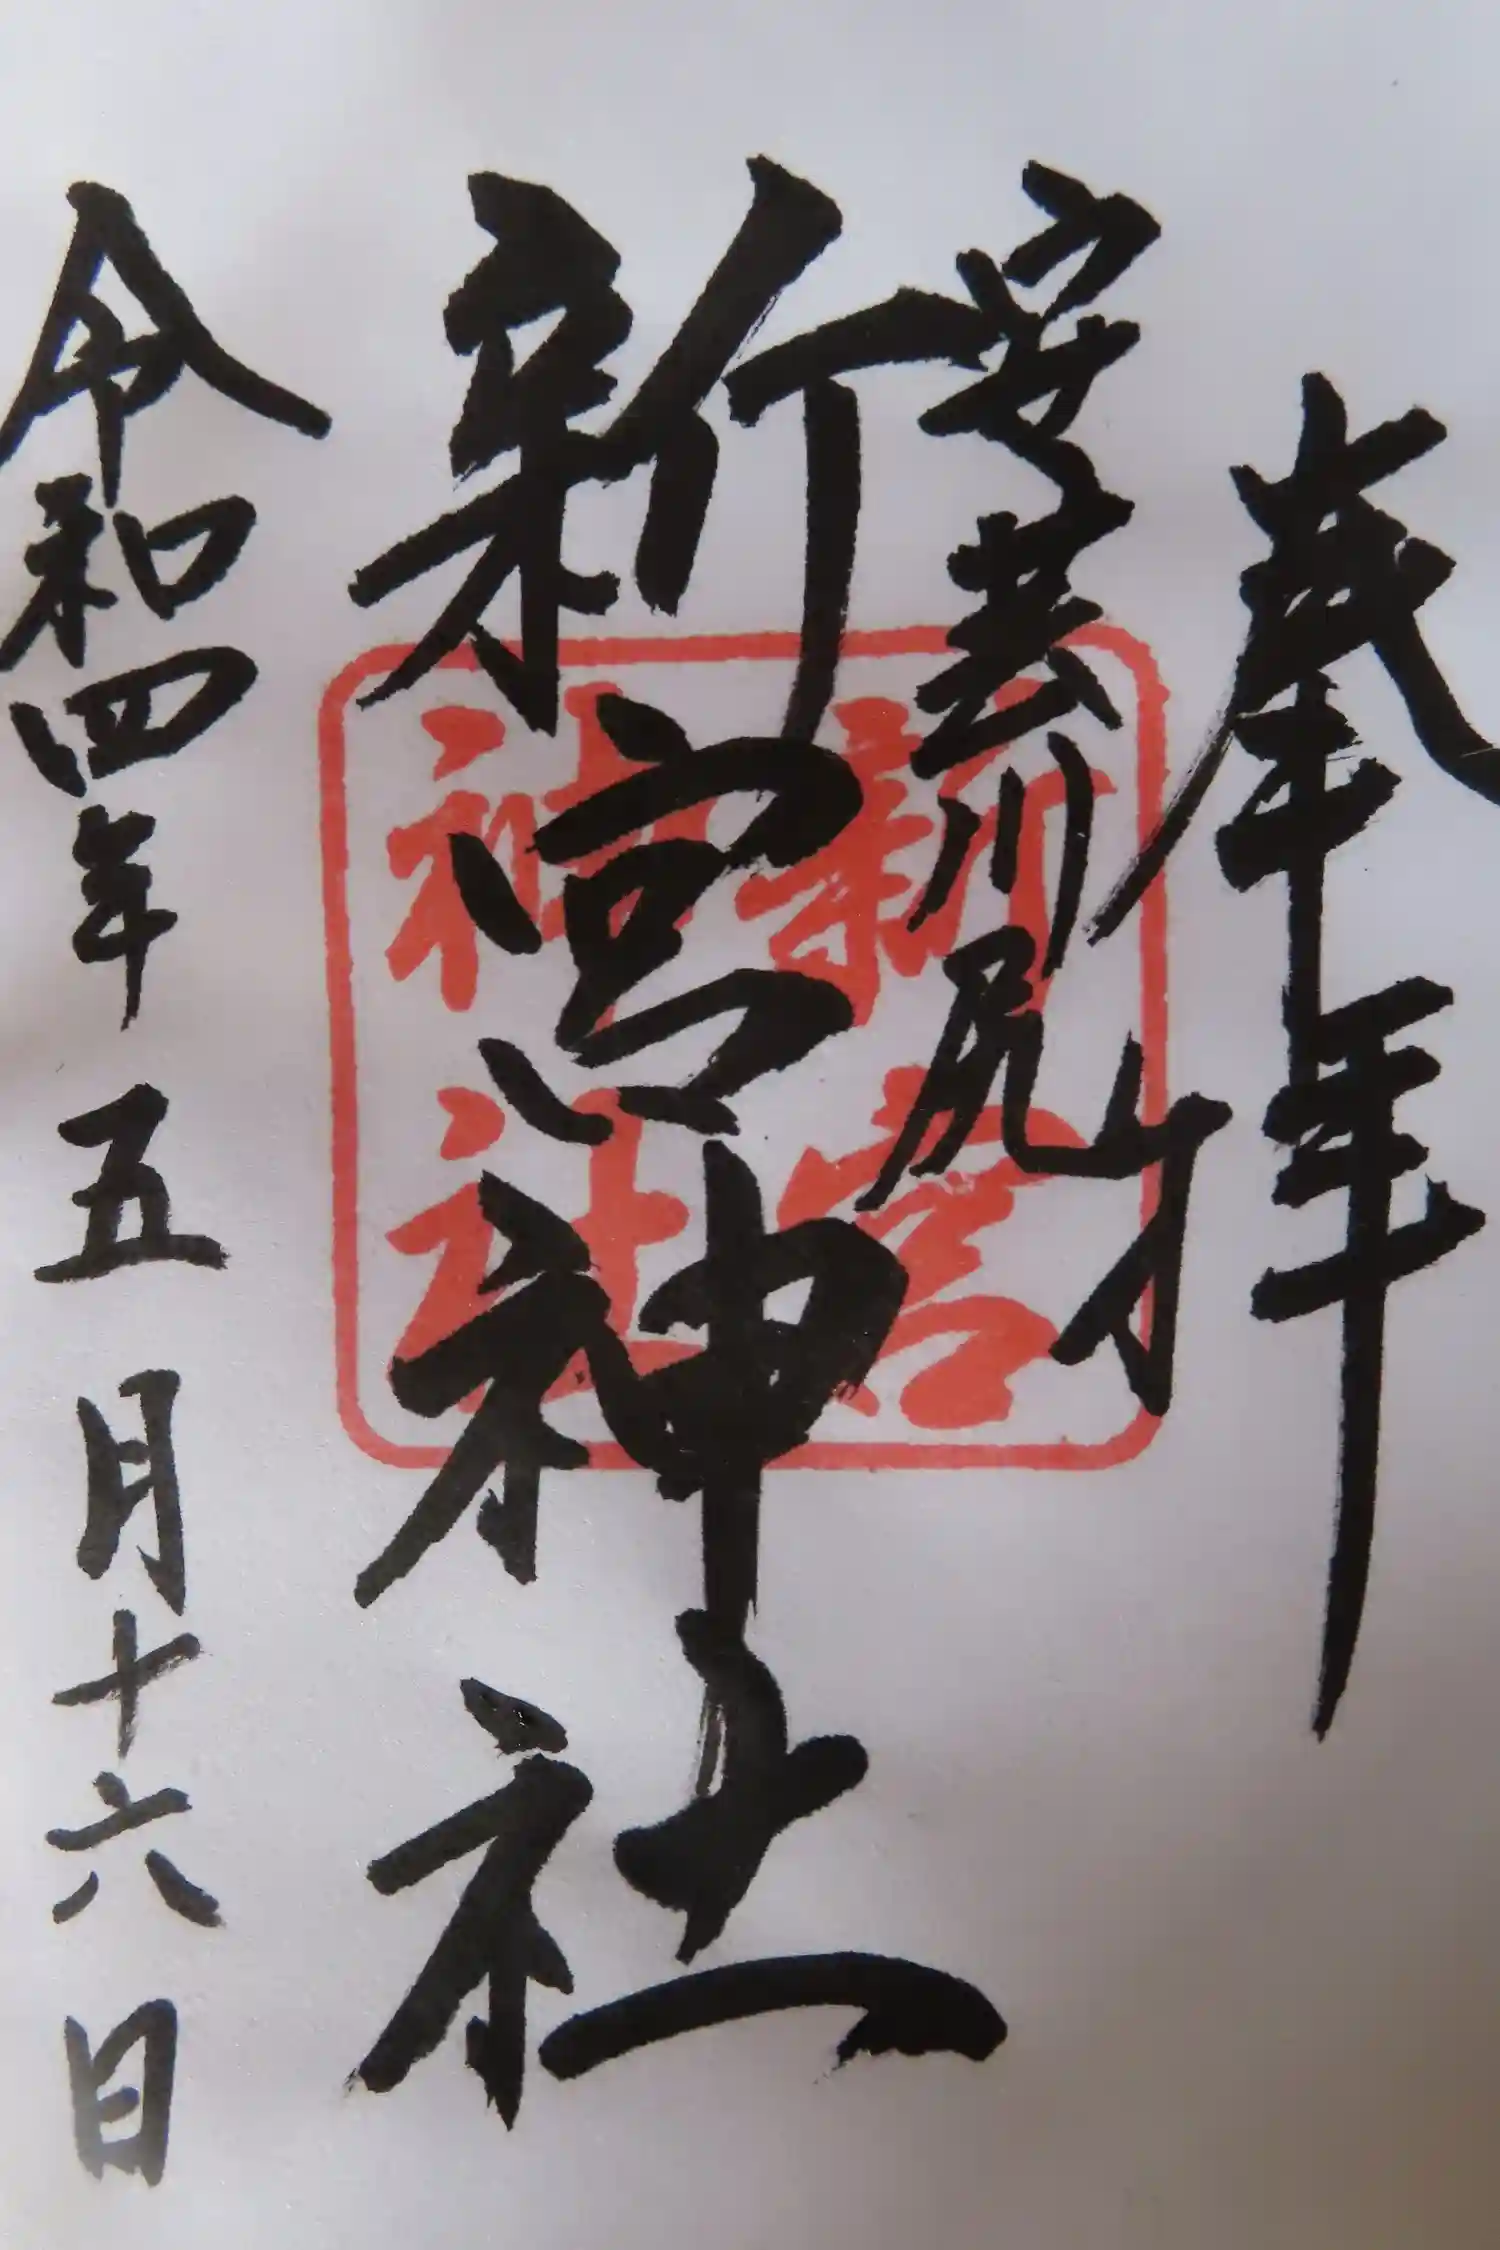 奉拝
安芸川尻
新宮神社
令和四年五月十六日
新宮
神社